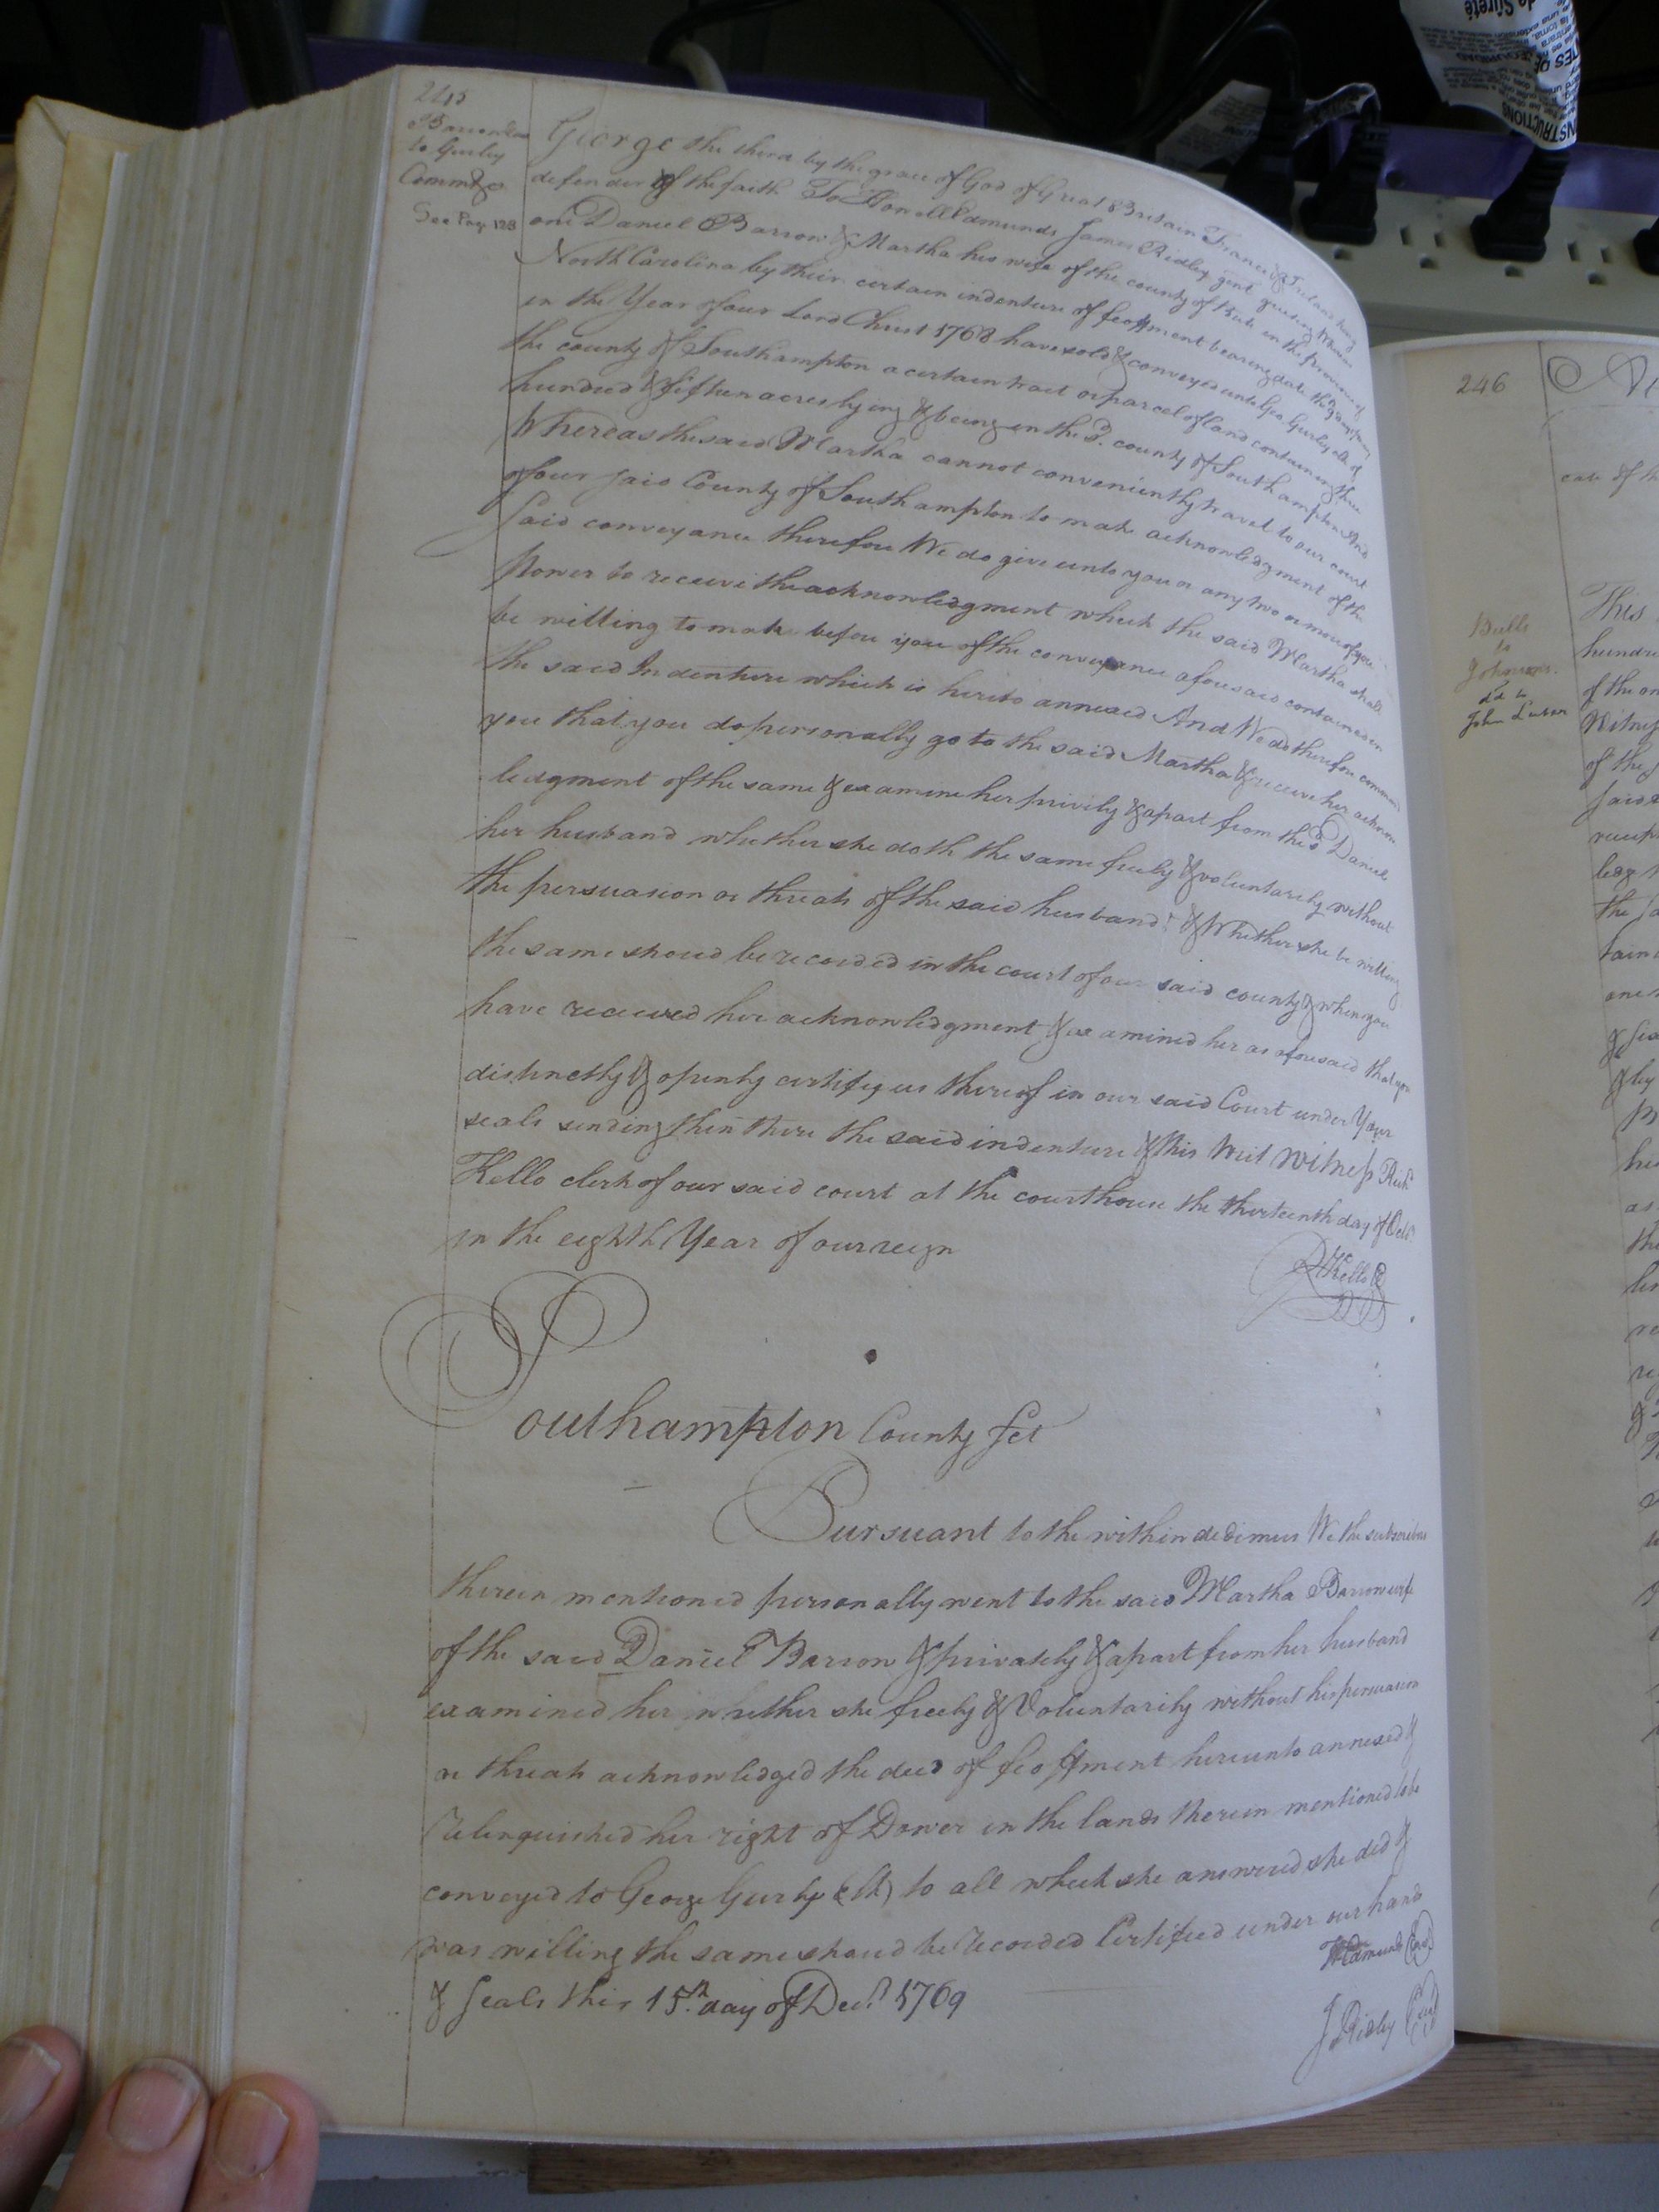 245
Barron &ux
to Gurley
Comm&c
See Pag 128
George the third by the grace of God of Great Britain France & Ireland King
defender of the faith To Howell Edmunds James Ridley gent greeting Whereas
one Daniel Barron & Martha his wife of the county of Bute in the province of
North Carolina by their certain indenture of feoffment bearing date the
in the Year of our Lord Christ 1768 have sold & conveyed unto Geo. Gurley all of
the county of Southampton a certain tract or parcel of land containing three
hundred & fifteen acres lying & being in the S. county of Southampton And
Whereas the said Martha cannot conveniently travel to our court
of our said County of Southampton to make acknowledgment of the
said conveyance therefore We do give unto you or any two or more of you
Power to receive the acknowledgment which the said Martha shall
be willing to make before you of the conveyance aforesaid contained in
the said Indenture which is hereto annexed And We do therefore command
you that you do personally go to the said Martha & receive her acknow
ledgment of the same & examine her privily & apart from the sd Daniel
her husband whether she doth the same freely & voluntarily without
the persuasion or threats of the said husband & Whether she be willing
the same shoud be recorded in the court of our said county & when you
have received her acknowledgment & examined her as aforesaid that you
distinctly & openly certify us thereof in our said Court under Your
seals sending then there the said indenture & this Writ Witness Richd
Kello clerk of our said court at the courthouse the thirteenth day of Octr
in the eighth Year of our reign
R Kello
Southampton County Sct
Pursuant to the within dedimus We the subscribers
therein mentioned personally went to the said Martha Barron wife
of the said Daniel Barron & privately & apart from her husband
examined her whether she freely & Voluntarily without his persuasion
or threats acknowledged the deed of feoffment hereunto annexed &
Relinquished her right of Dower in the lands therein mentioned to be
conveyed to George Gurley to all which she answered she did &
was willing the same shoud be Recorded Certified under our hands
& Seals this 15th day of Decr 1769
HEdmunds
J Ridley Seal
246
Bulls
to
Johnson.
dd to
This
hundre
of the
Witness
of the
said
the